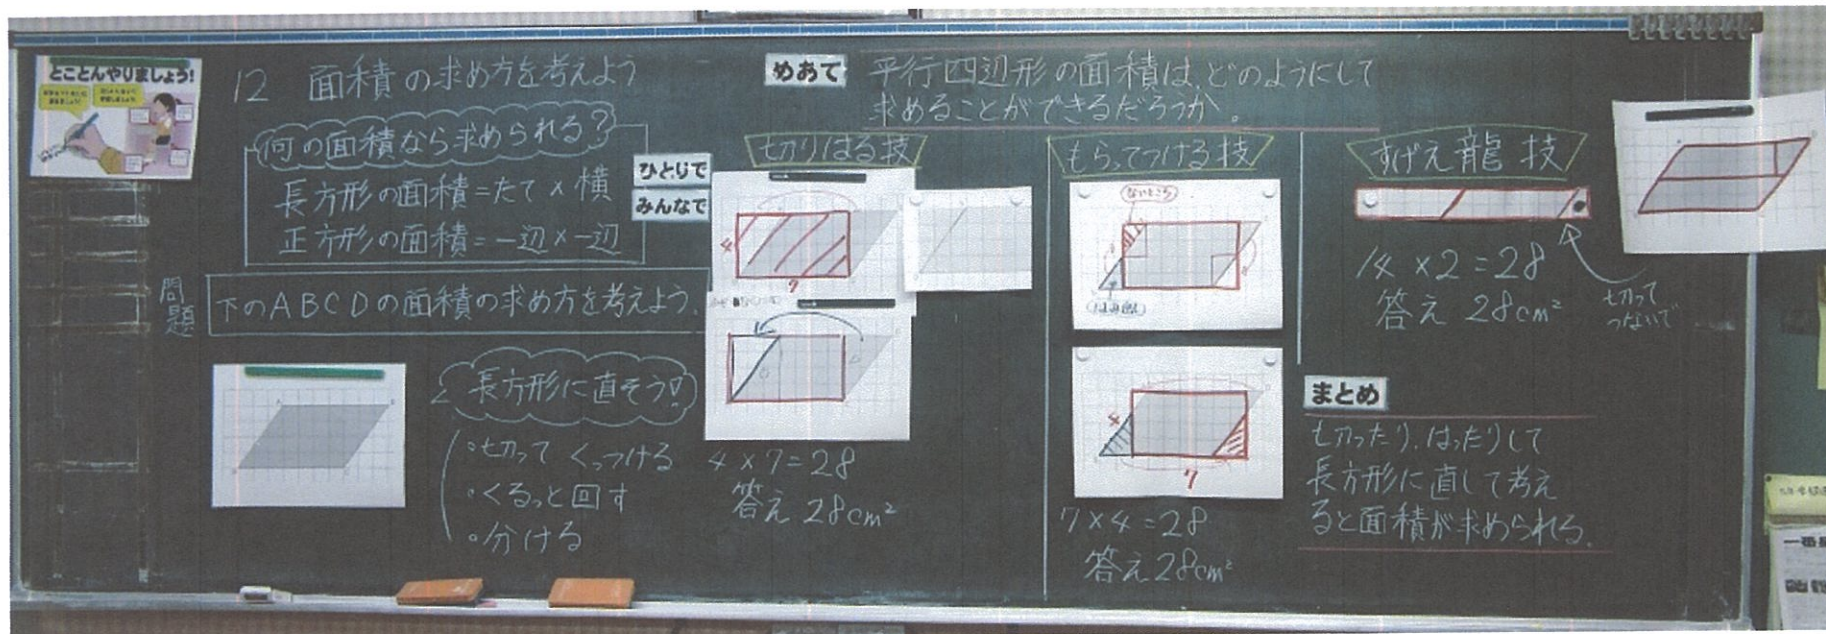 とことんやりましょう!
12 面積の求め方を考えよう
何の面積なら求められる?
長方形の面積=たて×横
正方形の面積=一辺×一辺
問題
下のABCDの面積の求め方を考えよう。
長方形に直そう!
・切って くっつける
・くるっと回す
・分ける
めあて
平行四辺形の面積は、どのようにして
求めることができるだろうか。
ひとりで
みんなで
切りはる技
4
7
4×7=28
答え 28cm²
もらってつける技
ないところ
4
7
7×4=28
答え 28cm²
すげえ龍技
14×2=28
答え 28cm²
切って
つないで
まとめ
切ったり、はったりして
長方形に直して考え
ると面積が求められる。